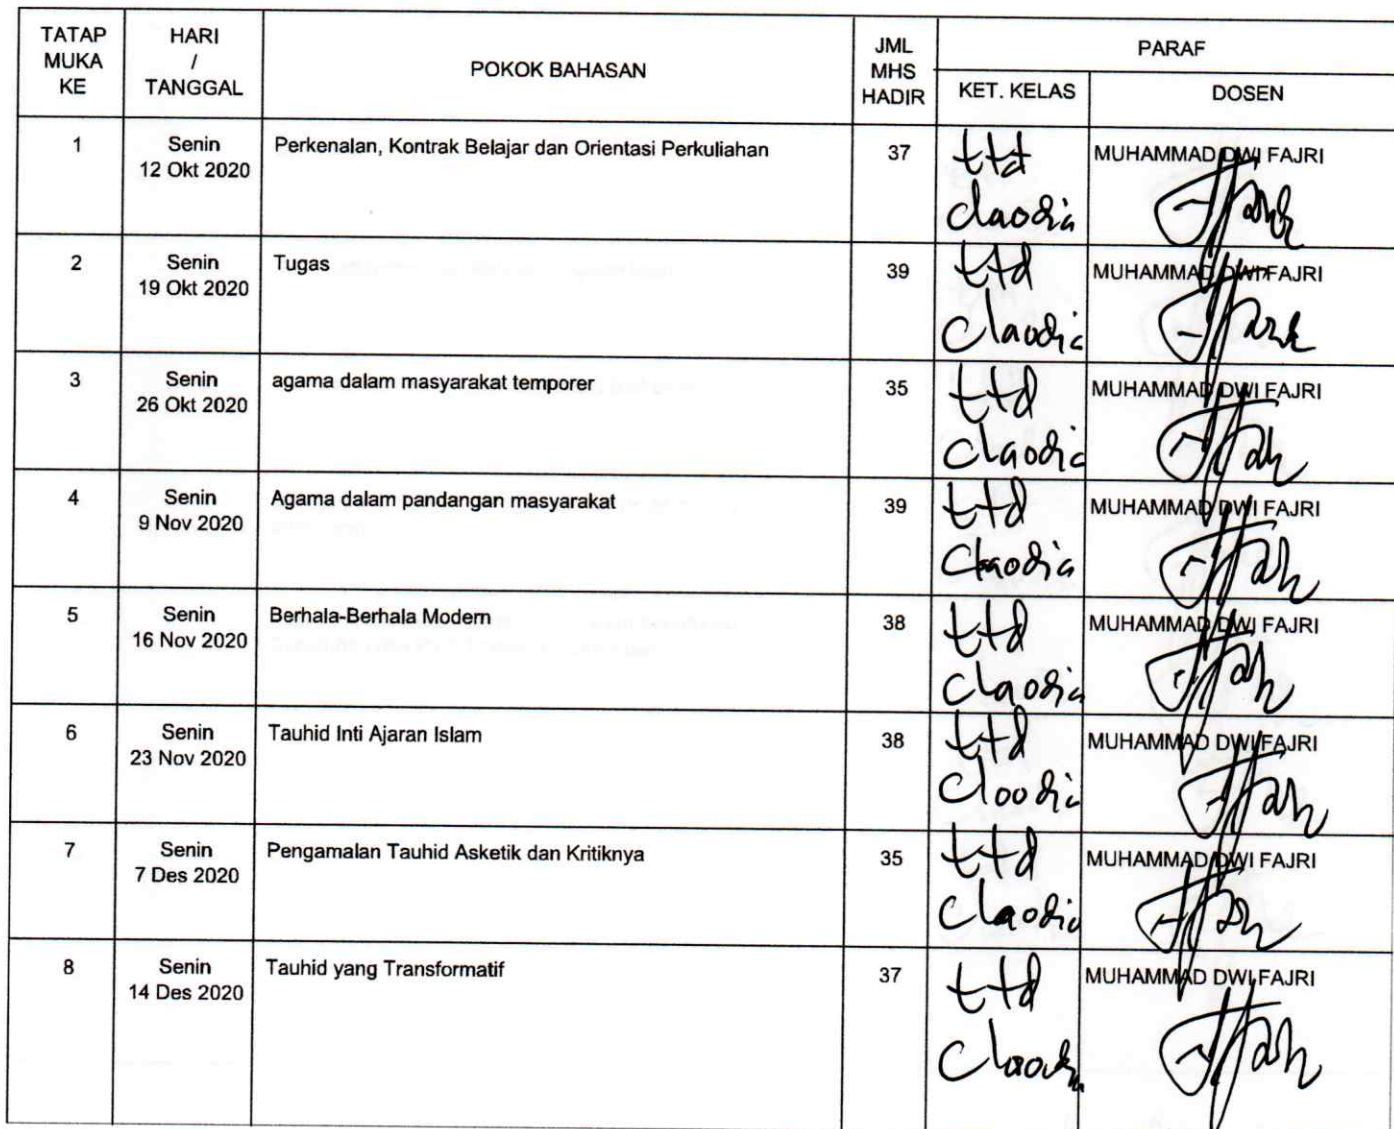 TATAP MUKA KE
HARI / TANGGAL
POKOK BAHASAN
JML MHS HADIR
PARAF
KET. KELAS
DOSEN
1
Senin
12 Okt 2020
Perkenalan, Kontrak Belajar dan Orientasi Perkuliahan
37
ttd
Claodia
MUHAMMAD DWI FAJRI
2
Senin
19 Okt 2020
Tugas
39
ttd
Claodia
MUHAMMAD DWI FAJRI
3
Senin
26 Okt 2020
agama dalam masyarakat temporer
35
ttd
Claodia
MUHAMMAD DWI FAJRI
4
Senin
9 Nov 2020
Agama dalam pandangan masyarakat
39
ttd
Claodia
MUHAMMAD DWI FAJRI
5
Senin
16 Nov 2020
Berhala-Berhala Modern
38
ttd
Claodia
MUHAMMAD DWI FAJRI
6
Senin
23 Nov 2020
Tauhid Inti Ajaran Islam
38
ttd
Claodia
MUHAMMAD DWI FAJRI
7
Senin
7 Des 2020
Pengamalan Tauhid Asketik dan Kritiknya
35
ttd
Claodia
MUHAMMAD DWI FAJRI
8
Senin
14 Des 2020
Tauhid yang Transformatif
37
ttd
Claodia
MUHAMMAD DWI FAJRI